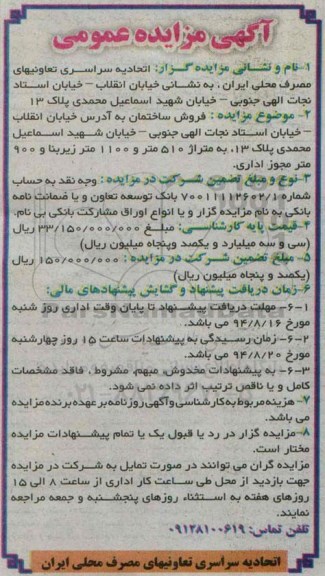 آگهی مزایده عمومی
۱-نام و نشانی مزایده گزار: اتحادیه سراسری تعاونیهای
مصرف محلی ایران ، به نشانی خیابان انقلاب – خیابان استاد
نجات الهی جنوبی – خیابان شهید اسماعیل محمدی پلاک ۱۳
۲- موضوع مزایده : فروش ساختمان به آدرس خیابان انقلاب
– خیابان استاد نجات الهی جنوبی – خیابان شهید اسماعیل
محمدی پلاک ۱۳، به متراژ ۵۱۰ متر و ۱۱۰۰ متر زیربنا و ۹۰۰
متر مجوز اداری.
۳-نوع و مبلغ تضمین شرکت در مزایده : وجه نقد به حساب
شماره ۷۰۰۱۱۱۲۶۰۲/۱ بانک توسعه تعاون و یا ضمانت نامه
بانکی به نام مزایده گزار و یا انواع اوراق مشارکت بانکی بی نام.
۴-قیمت پایه کارشناسی: مبلغ ۳۳/۱۵۰/۰۰۰/۰۰۰ ریال
(سی و سه میلیارد و یکصد وپنجاه میلیون ریال)
۵- مبلغ تضمین شرکت در مزایده : ۱۵۰/۰۰۰/۰۰۰ ریال
(یکصد و پنجاه میلیون ریال)
۶-زمان دریافت پیشنهاد و گشایش پیشنهادهای مالی:
۶-۱- مهلت دریافت پیشنهاد تا پایان وقت اداری روز شنبه
مورخ ۹۴/۸/۱۶ می باشد.
۶-۲- زمان رسیدگی به پیشنهادات ساعت ۱۵ روز چهارشنبه
مورخ ۹۴/۸/۲۰ می باشد.
۶-۳- به پیشنهادات مخدوش، مبهم، مشروط ، فاقد مشخصات
کامل و یا ناقص ترتیب اثر داده نمی شود.
۷-هزینه مربوط به کارشناسی و آگهی روزنامه بر عهده برنده مزایده
می باشد.
۸-مزایده گزار در رد یا قبول یک یا تمام پیشنهادات مزایده
مختار است.
مزایده گران می توانند در صورت تمایل به شرکت در مزایده
جهت بازدید از محل طی ساعت کار اداری از ساعت ۸ الی ۱۵
روزهای هفته به استثناء روزهای پنجشنبه و جمعه مراجعه
نمایند.
تلفن تماس: ۰۹۱۲۸۱۰۰۶۱۹
اتحادیه سراسری تعاونیهای مصرف محلی ایران